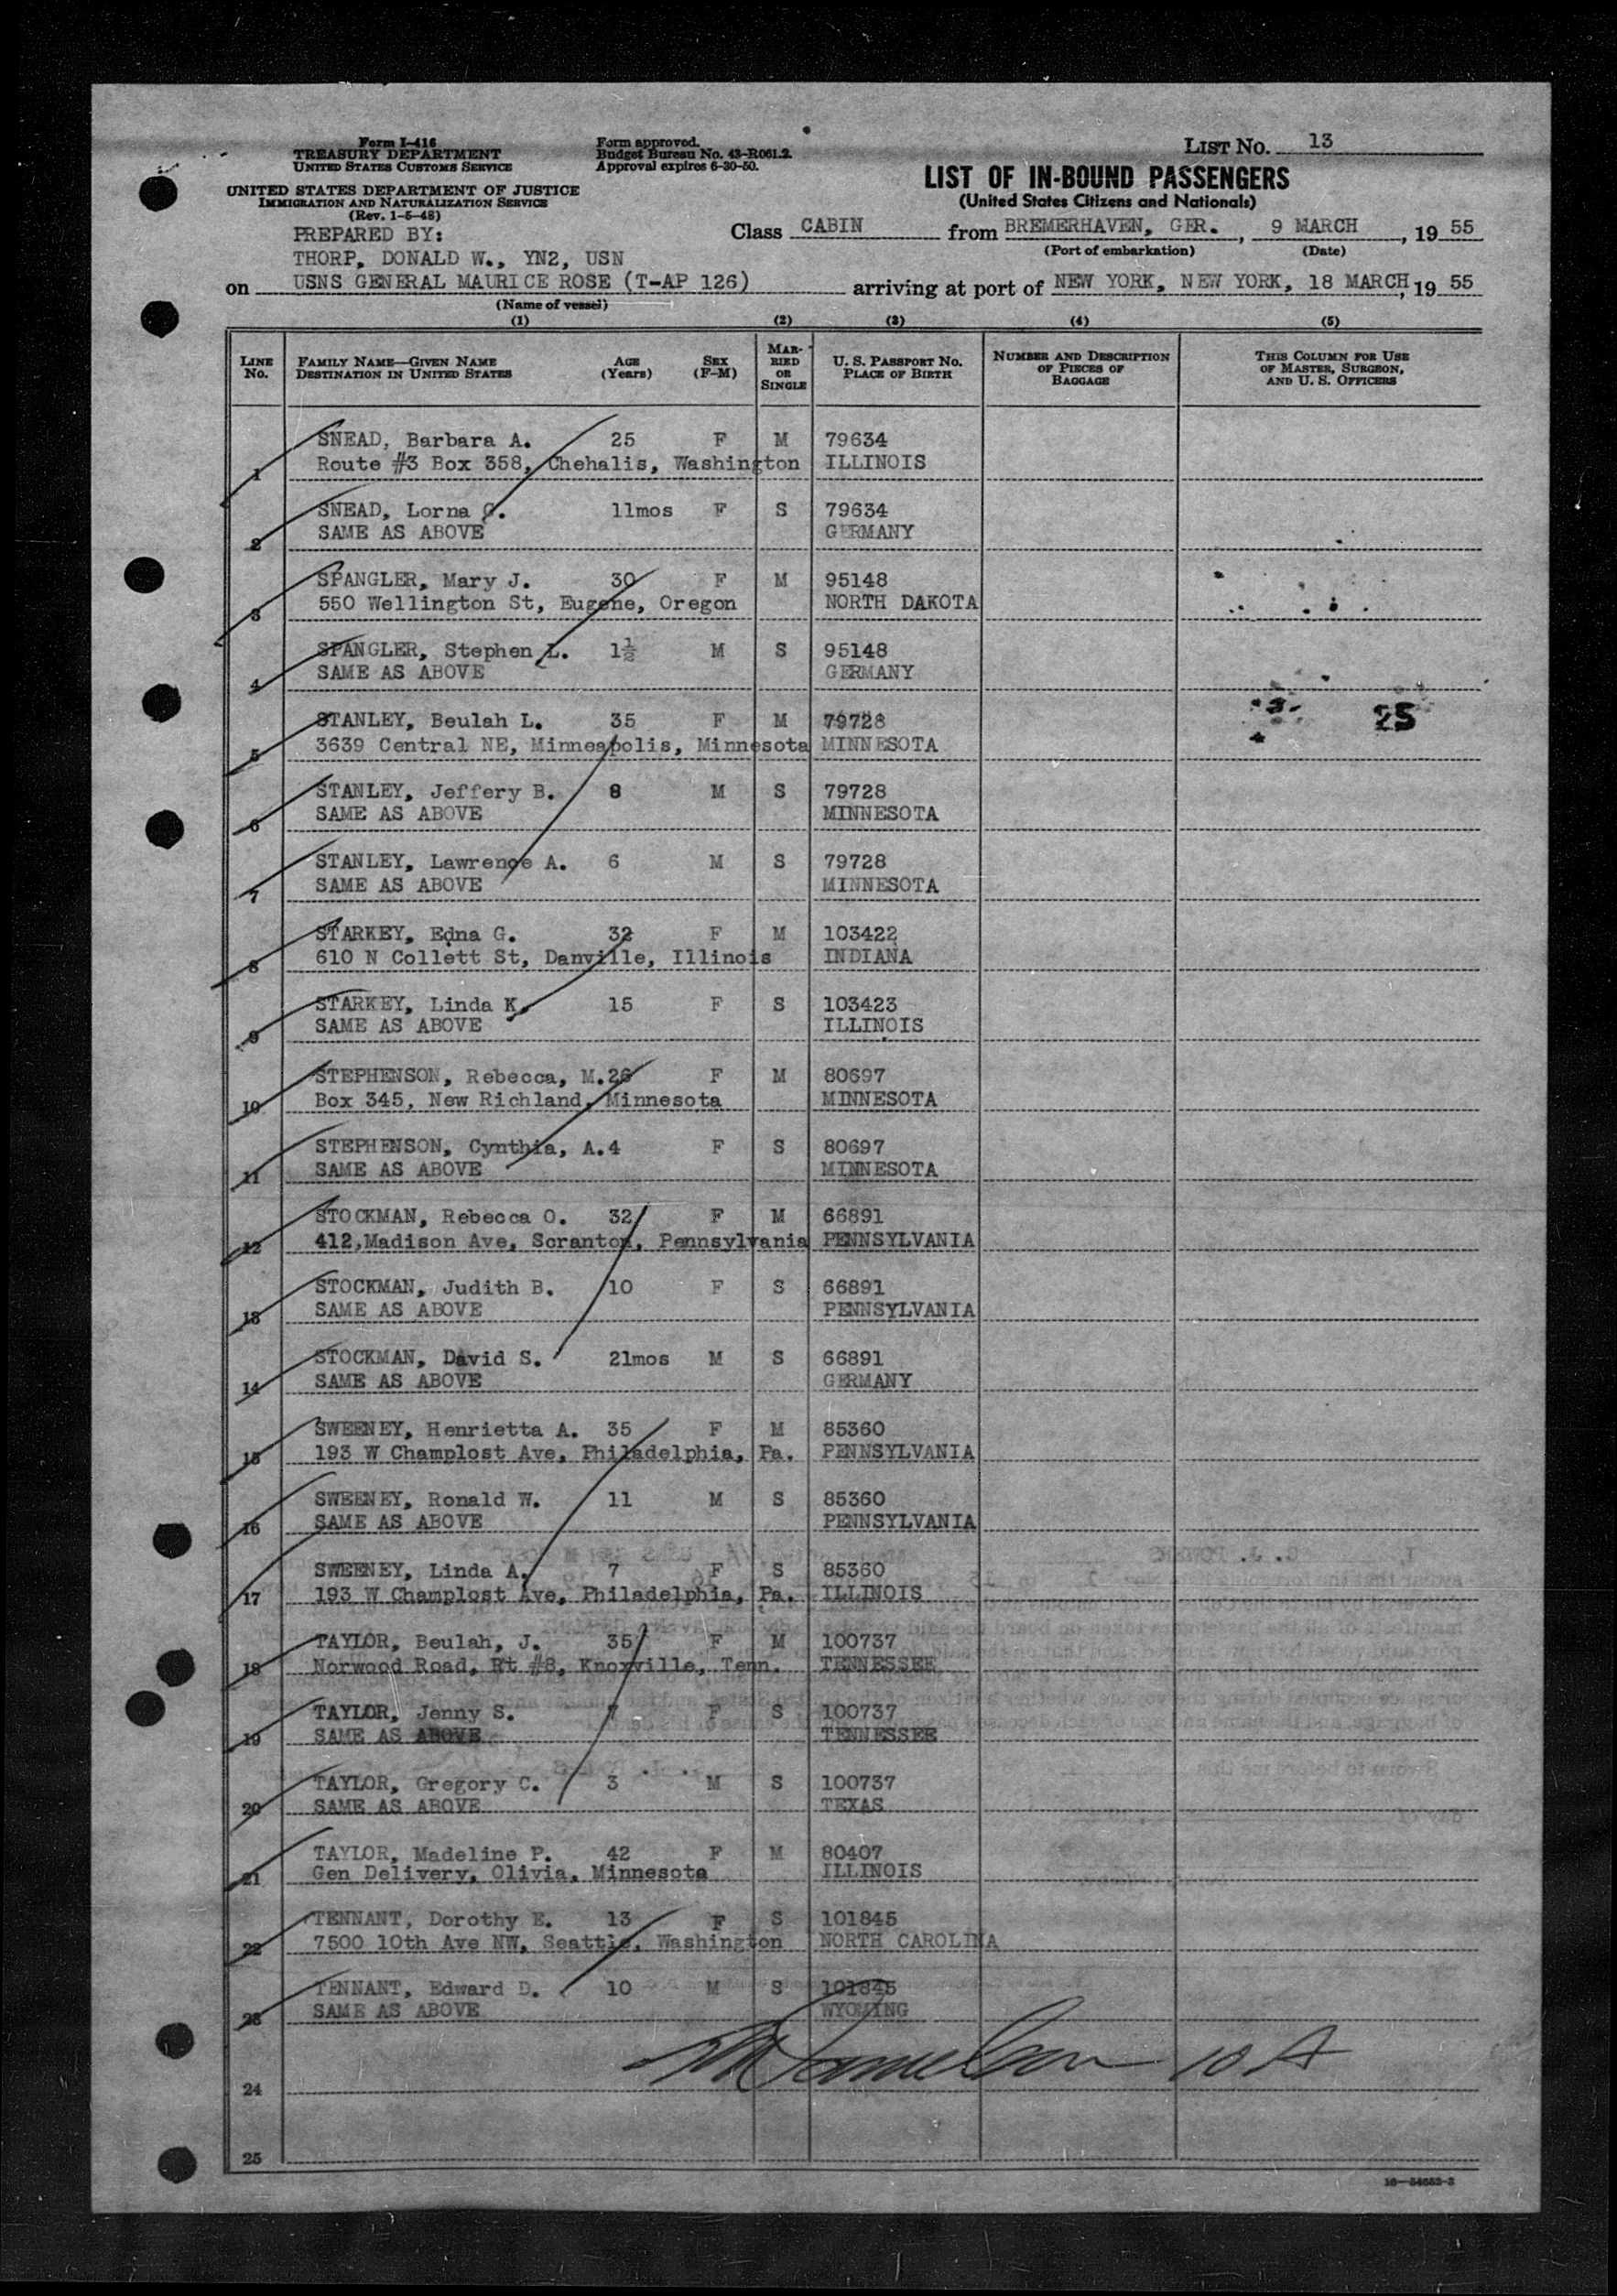 Form I-416
TREASURY DEPARTMENT
UNITED STATES CUSTOMS SERVICE
UNITED STATES DEPARTMENT OF JUSTICE
IMMIGRATION AND NATURALIZATION SERVICE
(Rev. 1-5-48)
Form approved.
Budget Bureau No. 43-R061.2.
Approval expires 6-30-50.
LIST NO. 13
LIST OF IN-BOUND PASSENGERS
(United States Citizens and Nationals)
PREPARED BY:
THORP, DONALD W., YN2, USN
Class CABIN from BREMERHAVEN, GER., 9 MARCH, 19 55
(Port of embarkation) (Date)
on USNS GENERAL MAURICE ROSE (T-AP 126) arriving at port of NEW YORK, NEW YORK, 18 MARCH, 19 55
(Name of vessel)
(1) (2) (3) (4) (5)
LINE NO. FAMILY NAME—GIVEN NAME DESTINATION IN UNITED STATES AGE (Years) SEX (F-M) MARRIED OR SINGLE U. S. PASSPORT NO. PLACE OF BIRTH NUMBER AND DESCRIPTION OF PIECES OF BAGGAGE THIS COLUMN FOR USE OF MASTER, SURGEON, AND U. S. OFFICERS
SNEAD, Barbara A. 25 F M 79634
1 Route #3 Box 358, Chehalis, Washington ILLINOIS
SNEAD, Lorna G. 11mos F S 79634
2 SAME AS ABOVE GERMANY
SPANGLER, Mary J. 30 F M 95148
3 550 Wellington St, Eugene, Oregon NORTH DAKOTA
SPANGLER, Stephen L. 1½ M S 95148
4 SAME AS ABOVE GERMANY
STANLEY, Beulah L. 35 F M 79728 25
5 3639 Central NE, Minneapolis, Minnesota MINNESOTA
STANLEY, Jeffery B. 8 M S 79728
6 SAME AS ABOVE MINNESOTA
STANLEY, Lawrence A. 6 M S 79728
7 SAME AS ABOVE MINNESOTA
STARKEY, Edna G. 32 F M 103422
8 610 N Collett St, Danville, Illinois INDIANA
STARKEY, Linda K. 15 F S 103423
9 SAME AS ABOVE ILLINOIS
STEPHENSON, Rebecca, M. 26 F M 80697
10 Box 345, New Richland, Minnesota MINNESOTA
STEPHENSON, Cynthia, A. 4 F S 80697
11 SAME AS ABOVE MINNESOTA
STOCKMAN, Rebecca O. 32 F M 66891
12 412,Madison Ave, Scranton, Pennsylvania PENNSYLVANIA
STOCKMAN, Judith B. 10 F S 66891
13 SAME AS ABOVE PENNSYLVANIA
STOCKMAN, David S. 21mos M S 66891
14 SAME AS ABOVE GERMANY
SWEENEY, Henrietta A. 35 F M 85360
15 193 W Champlost Ave, Philadelphia, Pa. PENNSYLVANIA
SWEENEY, Ronald W. 11 M S 85360
16 SAME AS ABOVE PENNSYLVANIA
SWEENEY, Linda A. 7 F S 85360
17 193 W Champlost Ave, Philadelphia, Pa. ILLINOIS
TAYLOR, Beulah, J. 35 F M 100737
18 Norwood Road, Rt #8, Knoxville, Tenn. TENNESSEE
TAYLOR, Jenny S. 7 F S 100737
19 SAME AS ABOVE TENNESSEE
TAYLOR, Gregory C. 3 M S 100737
20 SAME AS ABOVE TEXAS
TAYLOR, Madeline P. 42 F M 80407
21 Gen Delivery, Olivia, Minnesota ILLINOIS
TENNANT, Dorothy E. 13 F S 101845
22 7500 10th Ave NW, Seattle, Washington NORTH CAROLINA
TENNANT, Edward D. 10 M S 101845
23 SAME AS ABOVE WYOMING
24
25